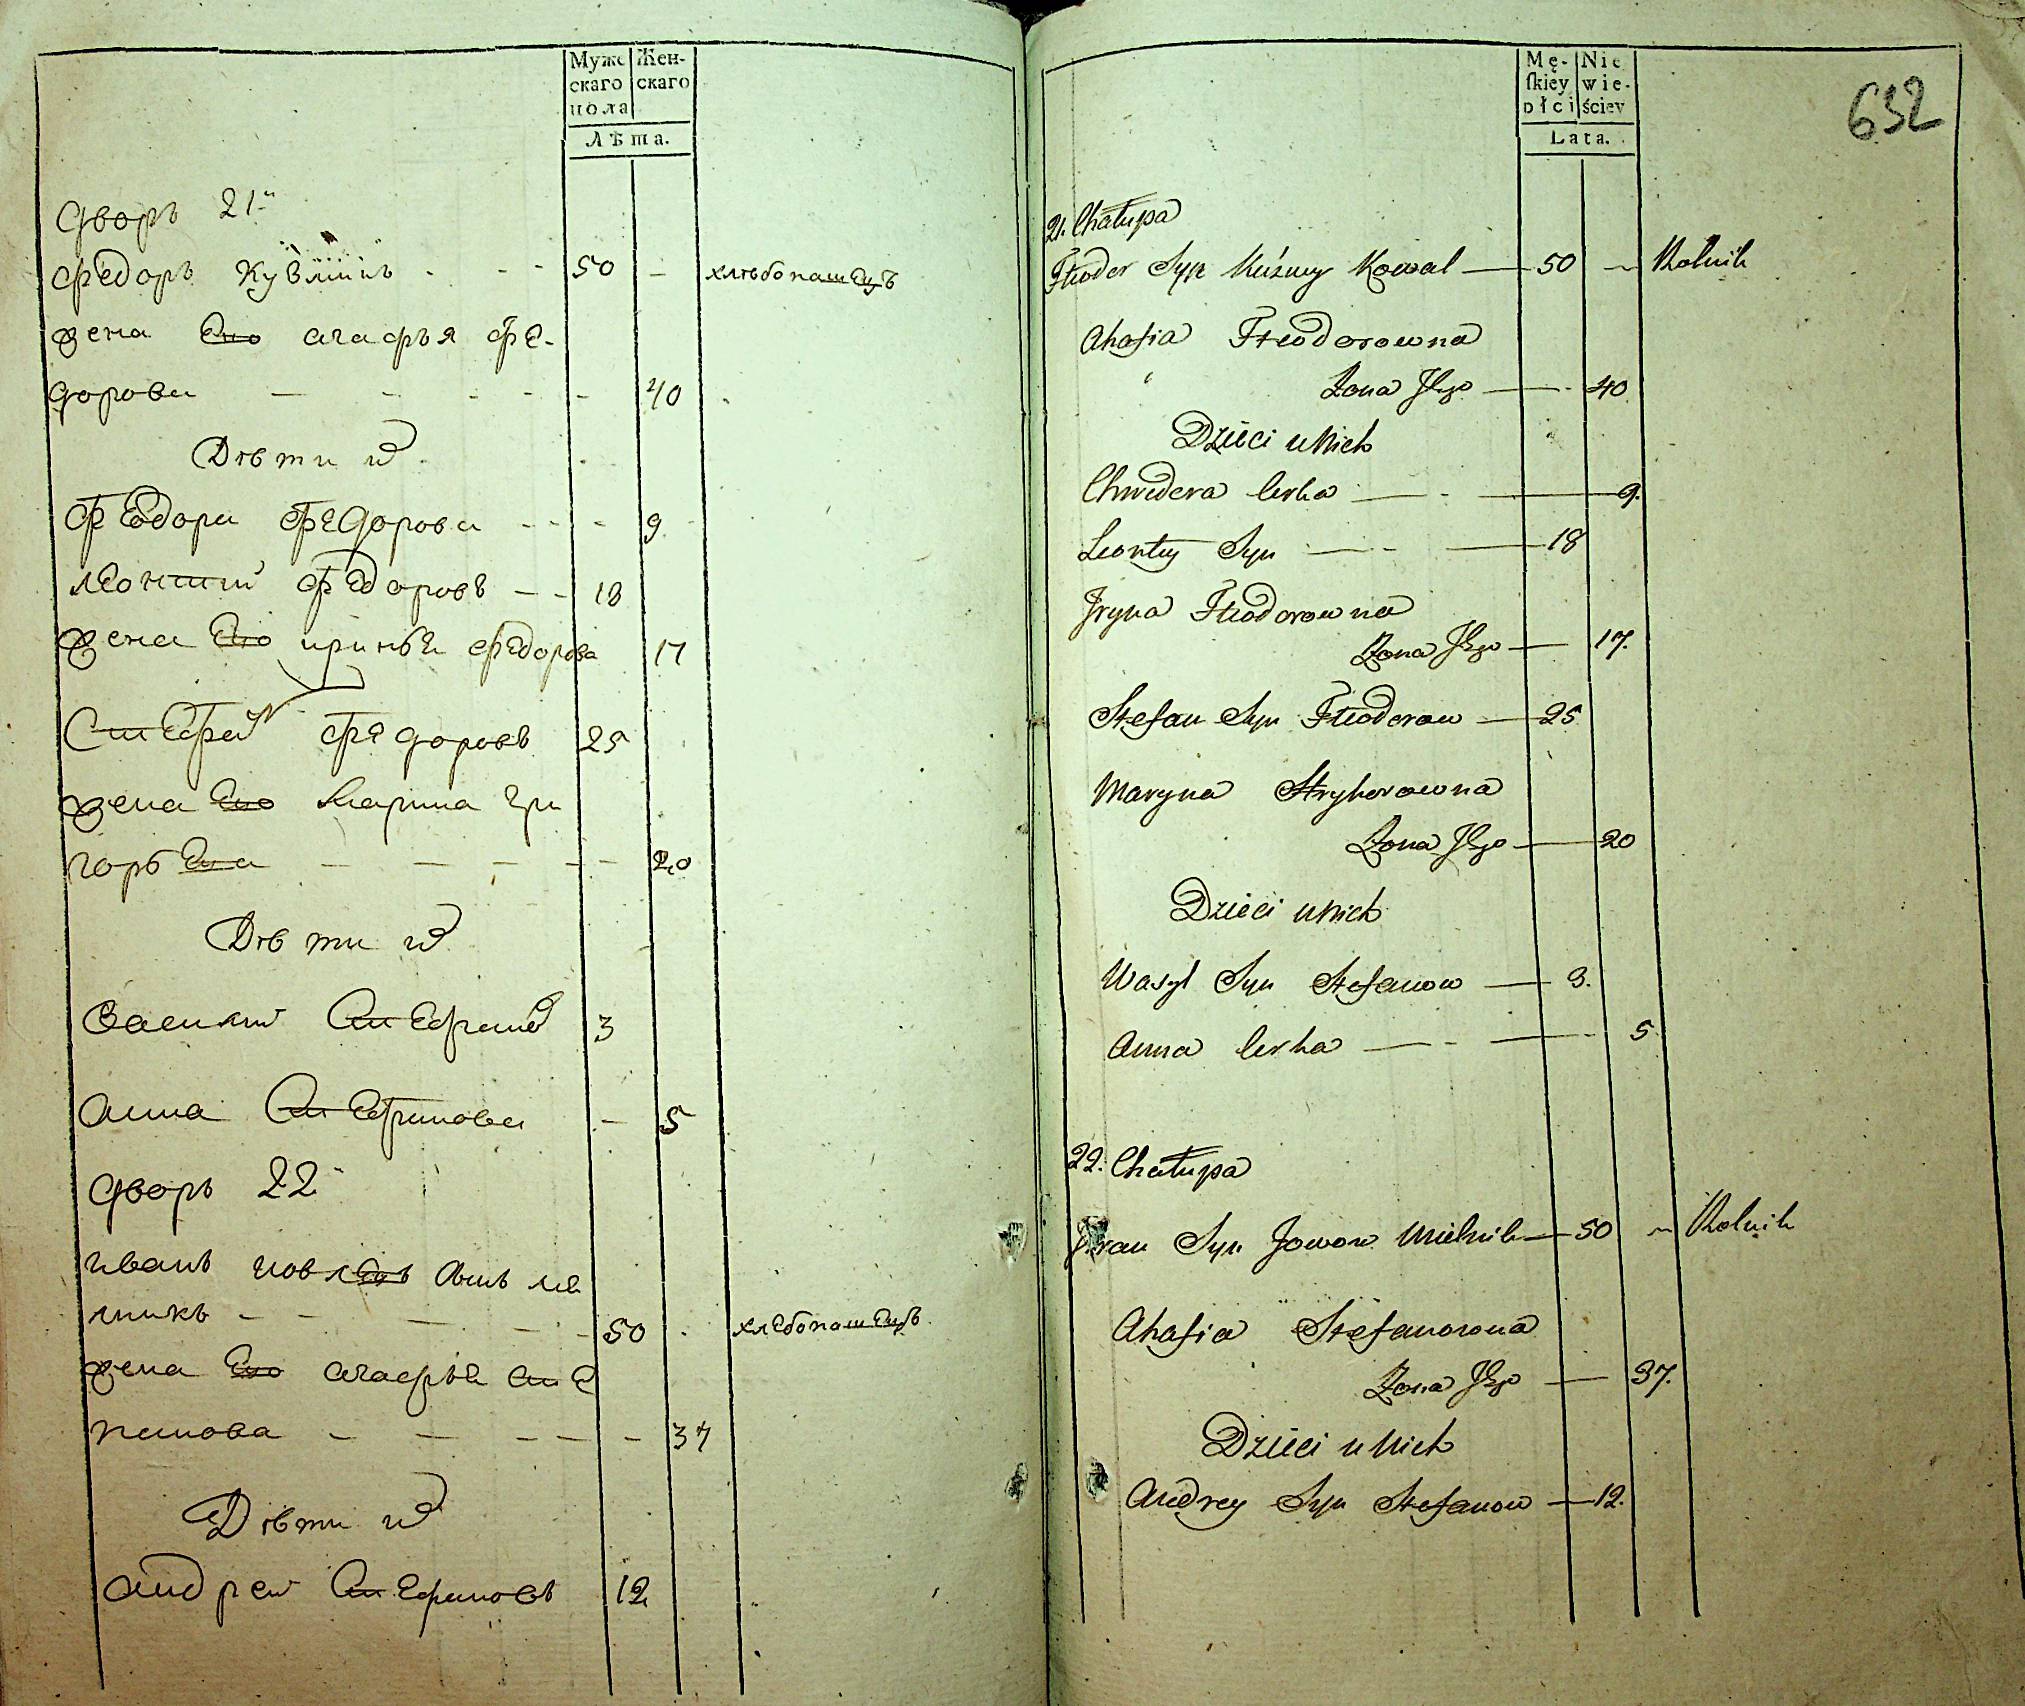 Муже
скаго
пола
Жен-
скаго
Лѣта.
дворъ 21й
федоръ Кузминъ - - - 50 - хлѣбопашецъ
жена Его агафья фе-
дорова - - - - - 40
Дѣти их
Федора федорова - - - 9
леонтий федоровъ - - 18
жена Его ирина федорова 17
Стефан федоровъ 25
жена Его Марина гри
горьева - - - - - 20
Дѣти их
Василий Стефанов 3
анна Стефанова - 5
дворъ 22
иванъ иовлевъ сынъ ме
лникъ - - - - - 50 хлебопашецъ
жена Его агафья Сте
панова - - - - - 37
Дѣти их
андреи Стефановъ 12
Mę-
skiey
płci
Nie
wie-
ściey
Lata.
632
21. Chałupa
Fteodor Syn Kuźmy Kowal — 50 ~ Rolnik
Ahafia Fteodorowna
Zona Jego — 40
Dzieci u Nich
Chwedera Corka — 9.
Leonty Syn — 18
Jryna Fteodorowna
Zona Jego — 17.
Stefan Syn Fteodorow — 25
Maryna Hryhorowna
Zona Jego — 20
Dzieci u Nich
Wasyl Syn Stefanow — 3.
Anna Corka — 5
22. Chałupa
Jwan Syn Jowow Mielnik — 50 ~ Rolnik
Ahafia Stefanowna
Zona Jego — 37.
Dzieci u Nich
Andrey Syn Stefanow — 12.